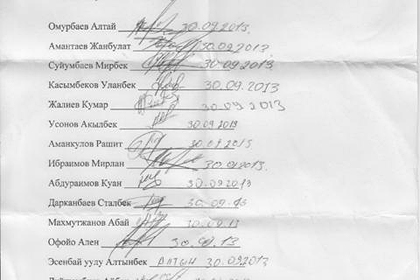 Омурбаев Алтай 30.09.2013
Амантаев Жанбулат 30.09.2013
Суйумбаев Мирбек 30.09.2013
Касымбеков Уланбек 30.09.2013
Жалиев Кумар 30.09.2013
Усонов Акылбек 30.09.2013
Аманкулов Рашит 30.09.2013
Ибраимов Мирлан 30.09.2013.
Абдураимов Куан 30.09.2013
Дарканбаев Сталбек 30.09.13
Махмутжанов Абай 30.09.13
Офойо Ален 30.09.13
Эсенбай уулу Алтынбек Алтын 30.09.2013